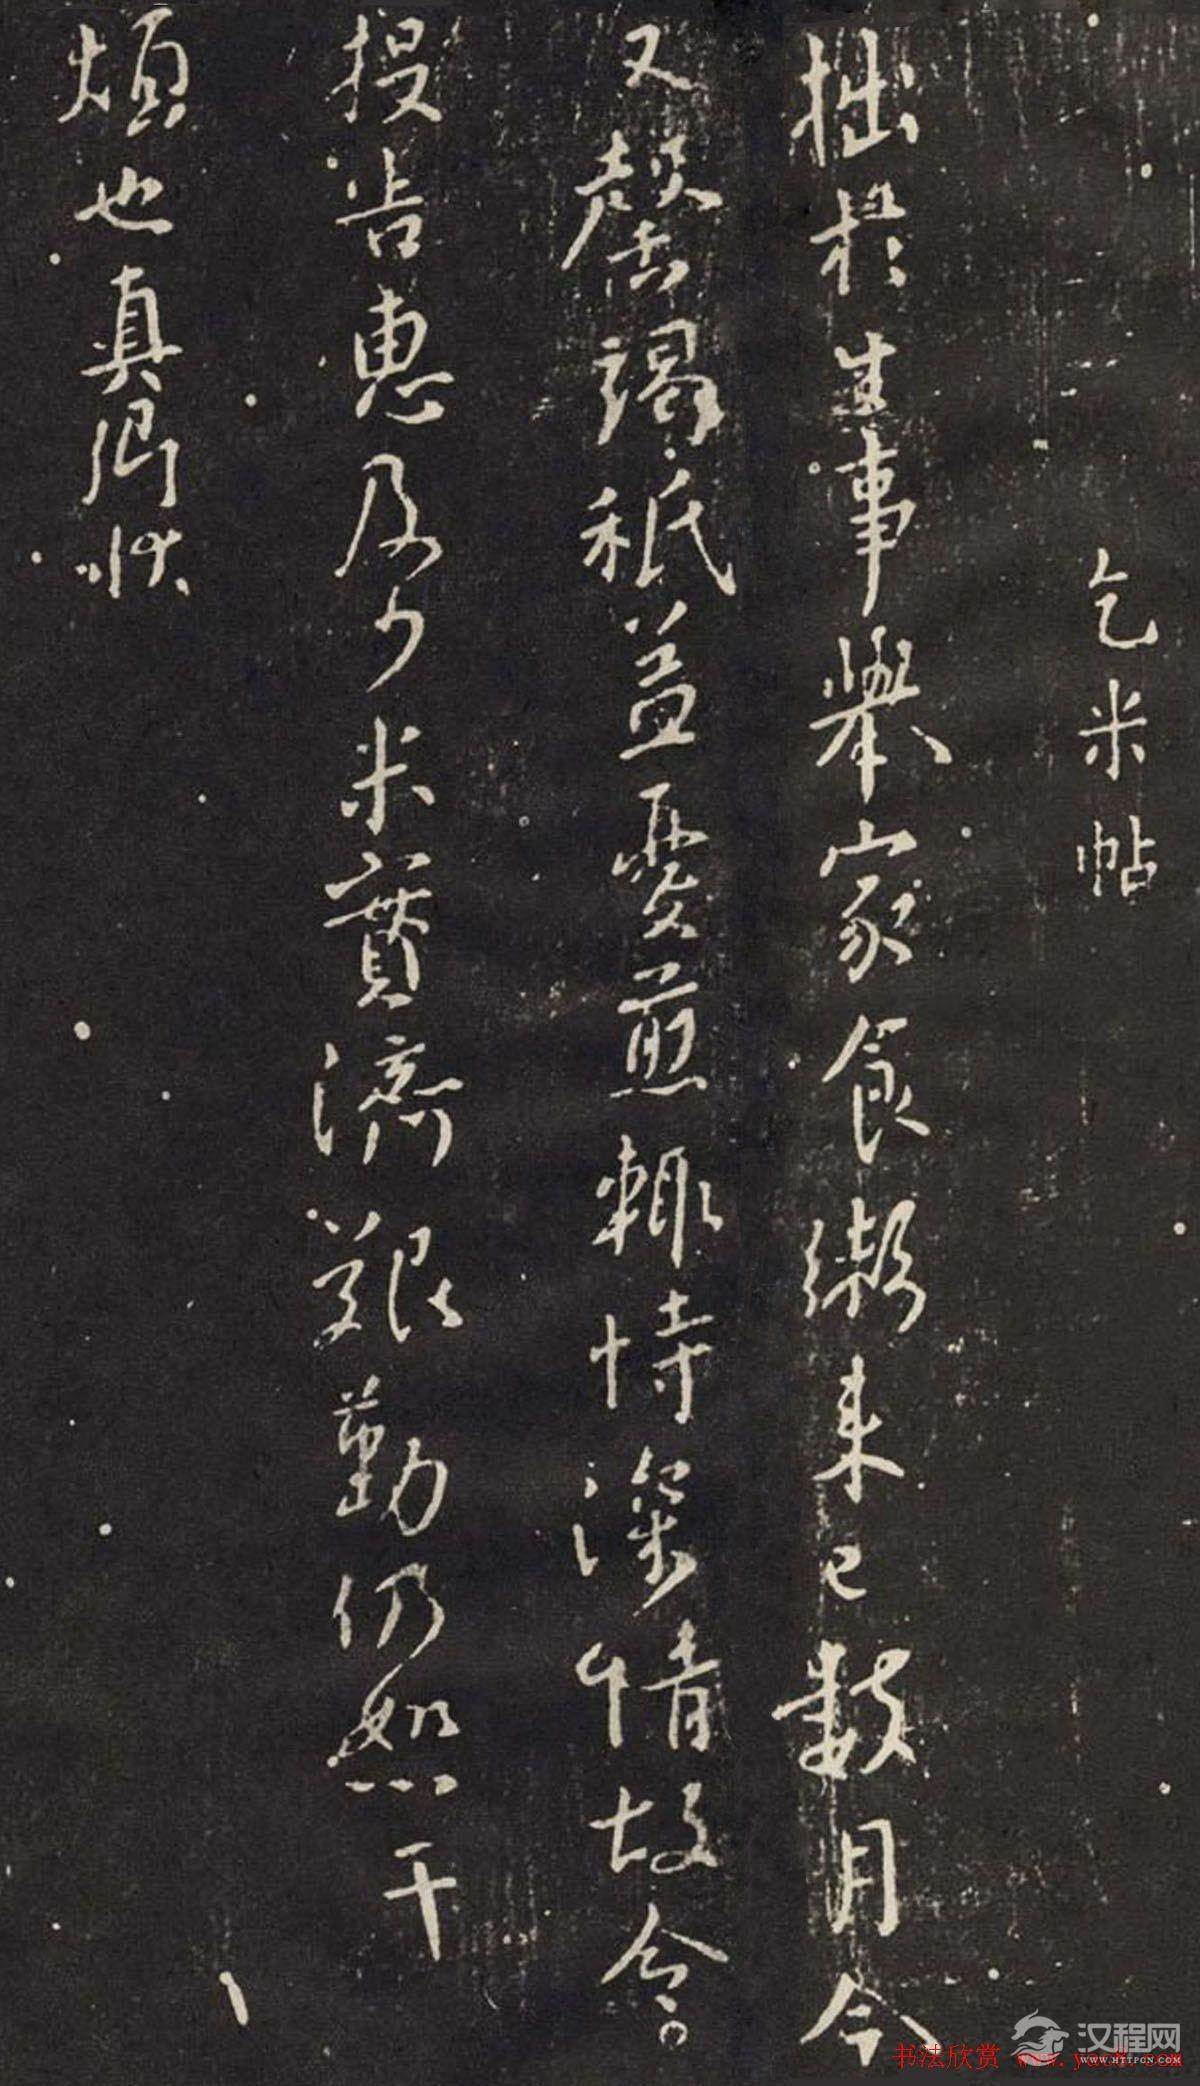 乞米帖
拙於生事舉家食粥来已數月今
又罄竭秖益憂煎輒恃深情故令
投告惠及少米實濟艱勤仍恕干
煩也真卿狀
汉程网
WWW.HTTPCN.COM
书法欣赏